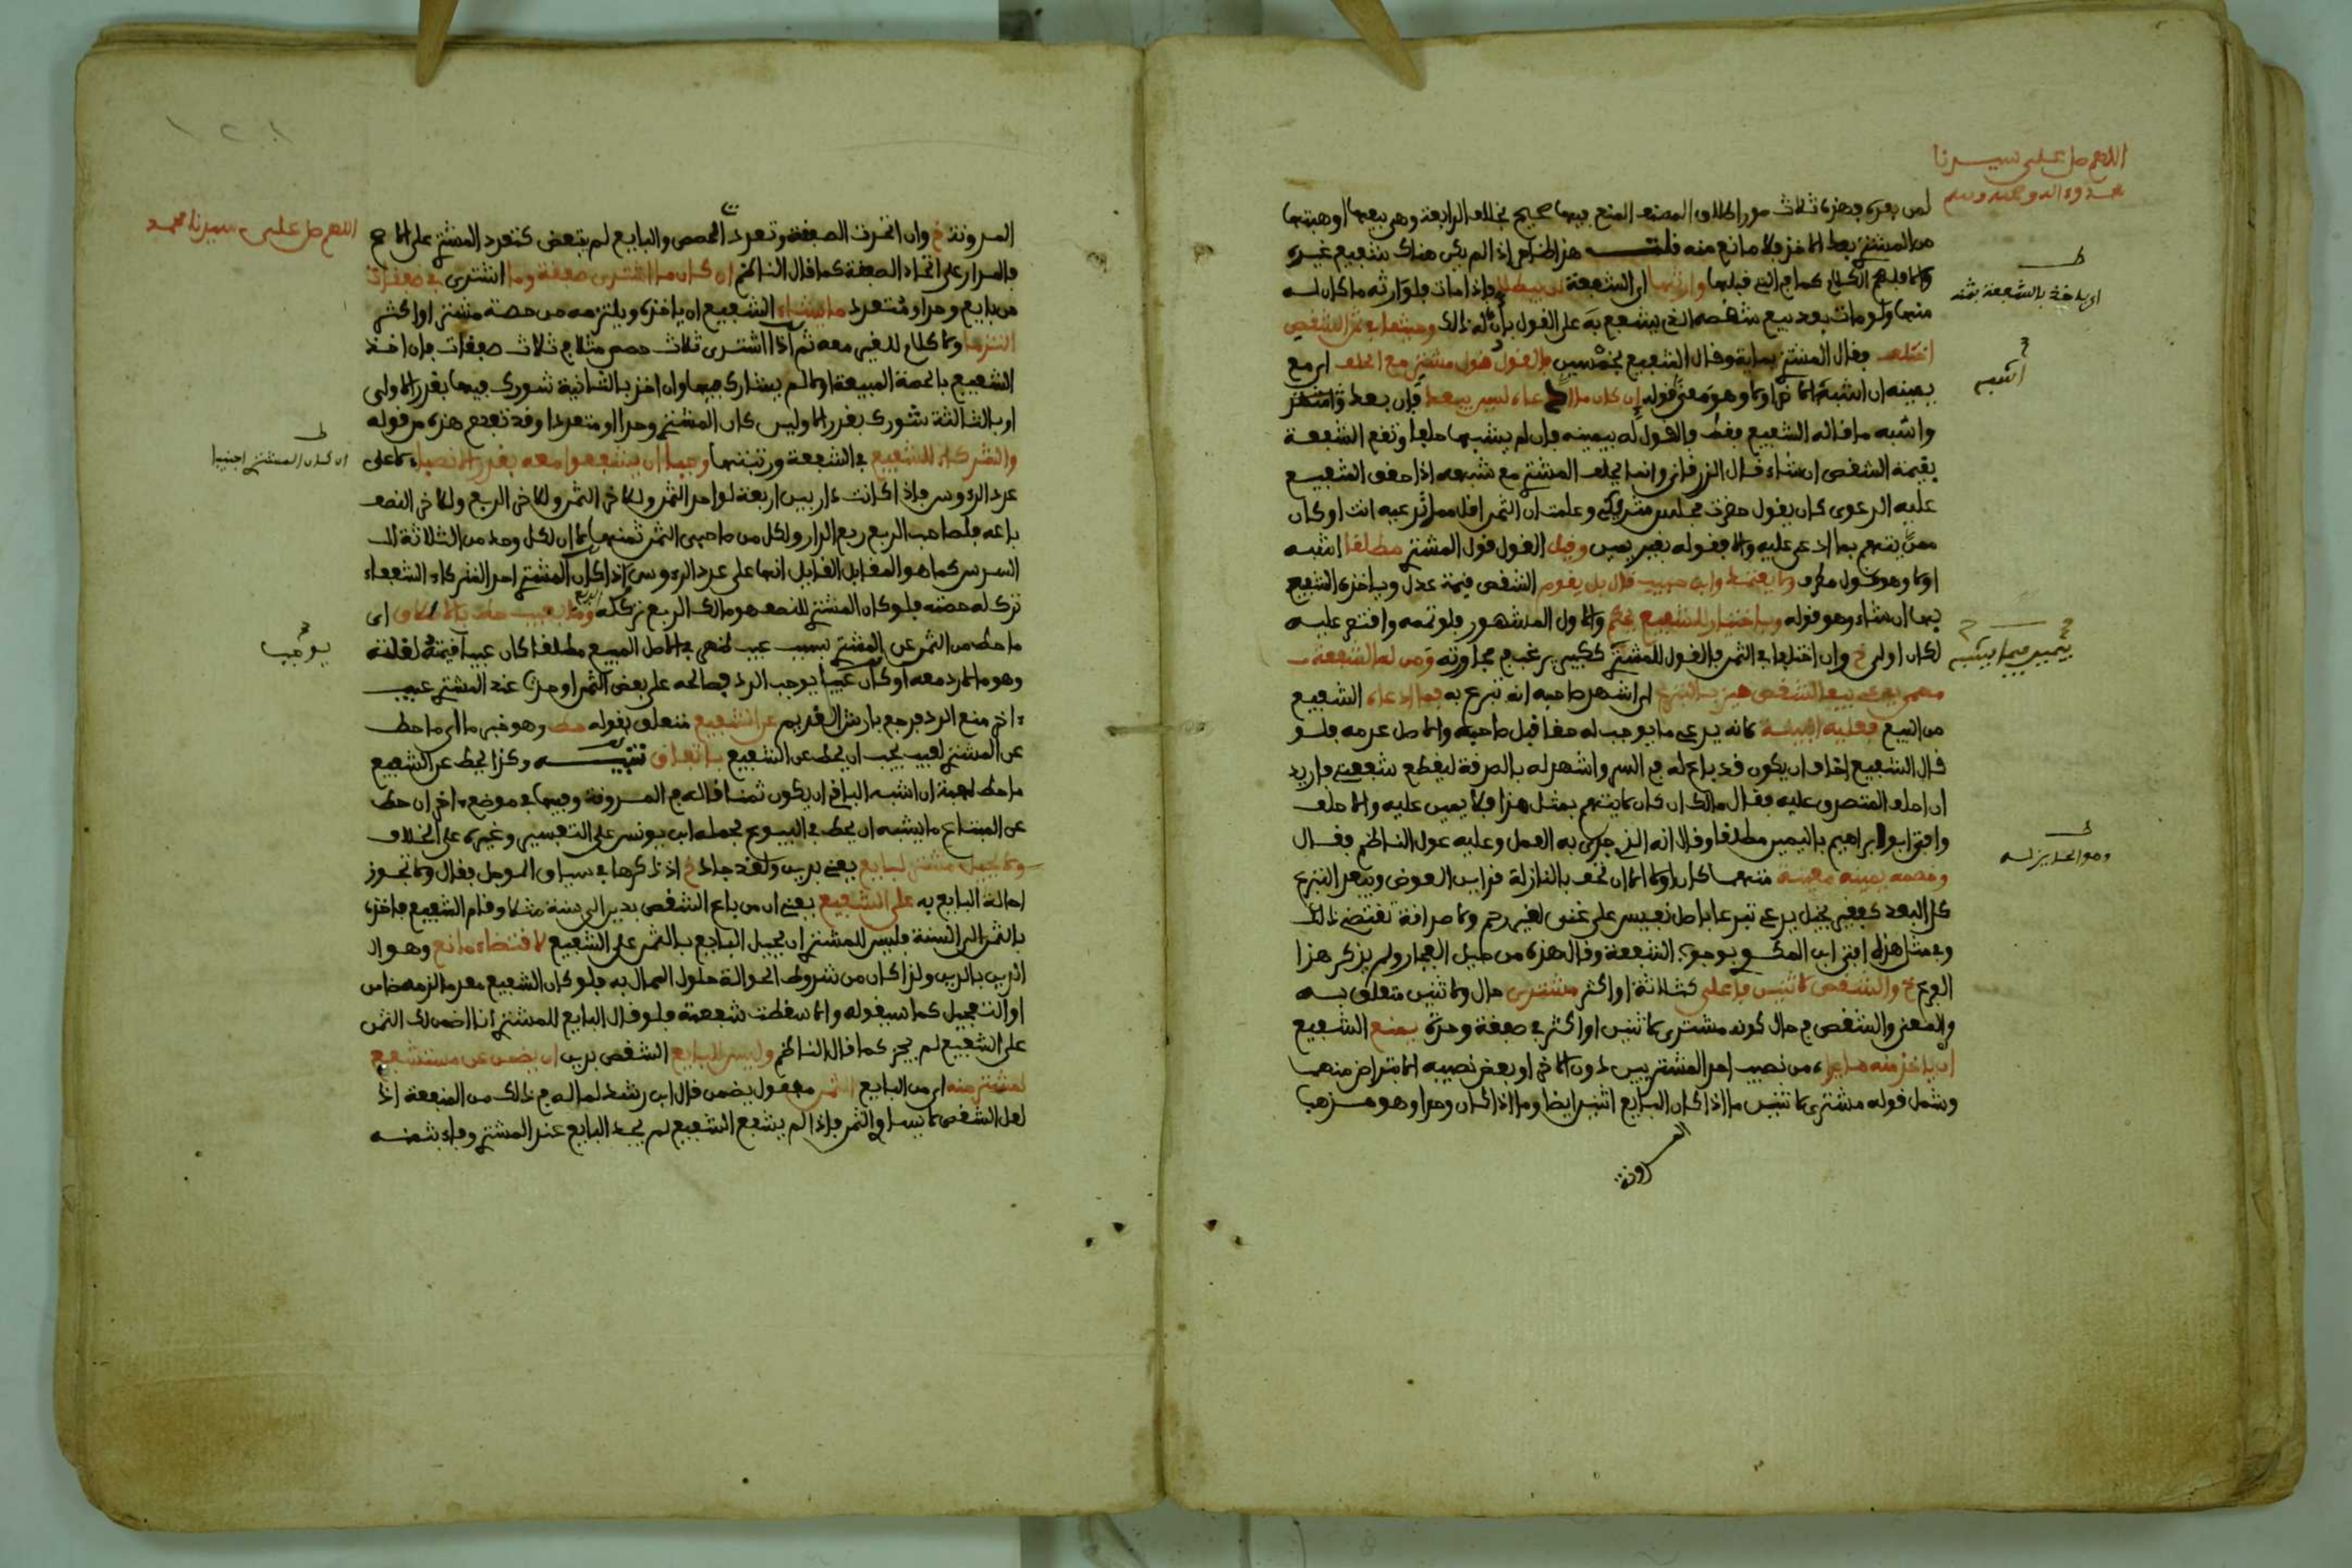 اللهم صل على سيدنا
محمد وءاله وصحبه وسلم
لمن بعده فهذه ثلاث صور اطلاق المصنف المنع فيها صحيح بخلاف الرابعة وهي بيعها او هبتها
من المشتري بعد الاخذ فلا مانع منه قلت هذا ظاهر اذا لم يكن هناك شفيع غيره
والا فليهم الكلام كما في التي قبلها وارثها اي الشفعة لن يبطلا فاذا مات فلوارثه ما كان له
اي ياخذ بالشفعة بثمنه
منها ولو مات بعد بيع شقصه الذي يشفع به على القول بان له ذلك وحيثما في ثمن الشقص
اختلف فقال المشتري بماية وقال الشفيع بخمسين فالقول قول مشتر مع الحلف اي مع
اشبه
يمينه ان اشبه الاخر او لا وهو معنى قوله ان كان ما ادعاه ليس يبعد فان بعد
واشبه ما قاله الشفيع فقط فالقول له بيمينه فان لم يشبها حلفا وتقع الشفعة
بقيمة الشقص ان شاء قال الزرقاني وانما يحلف المشتري مع شبهه اذا حقق الشفيع
عليه الدعوى كان يقول حضرت مجلس مشتريك وعلمت ان الثمن اقل مما تدعيه انت او كان
ممن يتهم بما ادعى عليه والا فقوله بغير يمين وقيل القول قول المشتري مطلقا اشبه
او لا وهو قول مطرف وابن حبيب قال بل يقوم الشقص قيمة عدل وياخذه الشفيع
بها ان شاء وهو قوله وباختيار للشفيع والاول المشهور فلو تممه واقتصر عليه
لكان اولى خ وان اختلفا في الثمن فالقول للمشتري ككبير يرغب في مجاورته ومن له الشفعة
مهما يدعي بيعا لشقص حيز بالتبرع اي اشهر صاحبه انه تبرع به فما ادعاه الشفيع
من البيع فعليه البينة لانه يدعي ما يوجب له حقا قبل صاحبه والاصل عدمه فلو
قال الشفيع اخاف ان يكون قد باع له في السر واشهر له بالصدقة ليقطع شفعتي فاريد
ان احلف المتصدق عليه فقال مالك ان كان لا يتهم بمثل هذا فلا يمين عليه والا حلف
وافتى ابو ابراهيم باليمين مطلقا وقال انه الذي جرى به العمل وعليه عول الناظم فقال
وهو الحايز له
وخصمه يمينه معينة متهما كان او لا الا ان تحف بالنازلة قراين العوض ويبعد التبرع
كل البعد كفقير بخيل يدعي تبرعا باصل نفيس على غني لغير رحم ولا صداقة تقتضي ذلك
وفي مثل هذه افتى ابن المكوي بوجوب الشفعة وقال هذه من حيل الفجار ولم يذكر هذا
الفرع خ والشقص لاثنين فاعلى كثلاثة او اكثر مشترى حال ولاثنين متعلق به
والمعنى والشقص في حال كونه مشترى لاثنين او اكثر في صفقة وحدة يمنع الشفيع
ان ياخذ منه من نصيب احد المشتريين دون الاخر او بعض نصيبه الا بتراض منهما
وشمل قوله مشترى لاثنين ما اذا كان البايع اثنين ايضا وما اذا كان وحدا وهو مذهب
المدونة
اللهم صل على سيدنا محمد
المدونة خ وان اتحدت الصفقة وتعددت الحصص والبايع لم يتبعض كتعدد المشتري على الاصح
فالمدار على اتحاد الصفقة كما قال الناظم ان كان ما اشترى صفقة وما اشترى في صفقات
من بايع وحد او متعدد ما يشاء الشفيع ان ياخذه ويلتزمه من حصة مشتر او اكثر
التزما ولا كلام للغير معه ثم اذا اشترى ثلاث حصص مثلا في ثلاث صفقات فان اخذ
الشفيع بالحصة المبيعة اولا لم يشارك فيها وان اخذ بالثانية شورك فيها بقدر الاولى
او بالثالثة شورك بقدر الاوليين كان المشتري وحدا او متعددا وقد تقدم هذه من قوله
ان كان المشتري اجنبيا
والشركاء للشفيع في الشفعة ورتبتها وجبا ان يشفعوا معه بقدر الانصباء لا على
عدد الرءوس فاذا كانت دار بين اربعة لواحد الثمن ولاخر الثمن ولاخر الربع ولاخر النصف
باعه فلصاحب الربع ربع الدار ولكل من صاحبي الثمن ثمنها لا ان لكل وحد من الثلاثة
السدس كما هو المقابل القايل انها على عدد الرءوس اذا كان المشتري احد الشركاء الشفعاء
ترك له حصته فلو كان المشتري للنصف هو مالك الربع ترك له وما بعيب حط بالاطلاق اي
ما حط من الثمن عن المشتري بسبب عيب ظهر في الاصل المبيع مطلقا كان عيب قيمة لقلته
يوجب
وهو ما لا رد معه او كان عيبا يوجب الرد فصالحه على بعض الثمن او حدث عند المشتري عيب
ءاخر منع الرد فرجع بارش القديم عن الشفيع متعلق بقوله حط وهو خبر ما اي ما حط
عن المشتري لعيب يجب ان يحط عن الشفيع باتفاق تنبيه وكذا يحط عن الشفيع
ما حط لهبة ان اشبه الباقي ان يكون ثمنا قاله في المدونة وفيها في موضع ءاخر ان حط
عن المبتاع ما يشبه ان يحط في البيوع فحمله ابن يونس على التفسير وغيره على الخلاف
ولا يحيل مشتر لبايع يعني بدين ولقد جاد خ اذ ذكرها في سياق المؤجل فقال ولا تجوز
احالة البايع به على الشفيع يعني ان من باع الشقص بدين الى سنة مثلا وقام الشفيع فاخذه
بالثمن الى السنة فليس للمشتري ان يحيل البايع بالثمن على الشفيع لاقتضاء مانع وهو ال
الدين بالدين ولذا كان من شروط الحوالة حلول المحال به فلو كان الشفيع معدما لزمه ضامن
او التعجيل كما سيقوله والا سقطت شفعته فلو قال البايع للمشتري انا اضمن لك الثمن
على الشفيع لم يجز كما قال الناظم وليس للبايع الشقص بدين ان يضمن عن مستشفع
لمشتر منه اي من البايع الثمن مفعول يضمن قال ابن رشد لما له في ذلك من المنفعة اذ
لعل الشقص لا يساوي الثمن فاذا لم يشفع الشفيع لم يجد البايع عند المشتري وفاء بثمنه